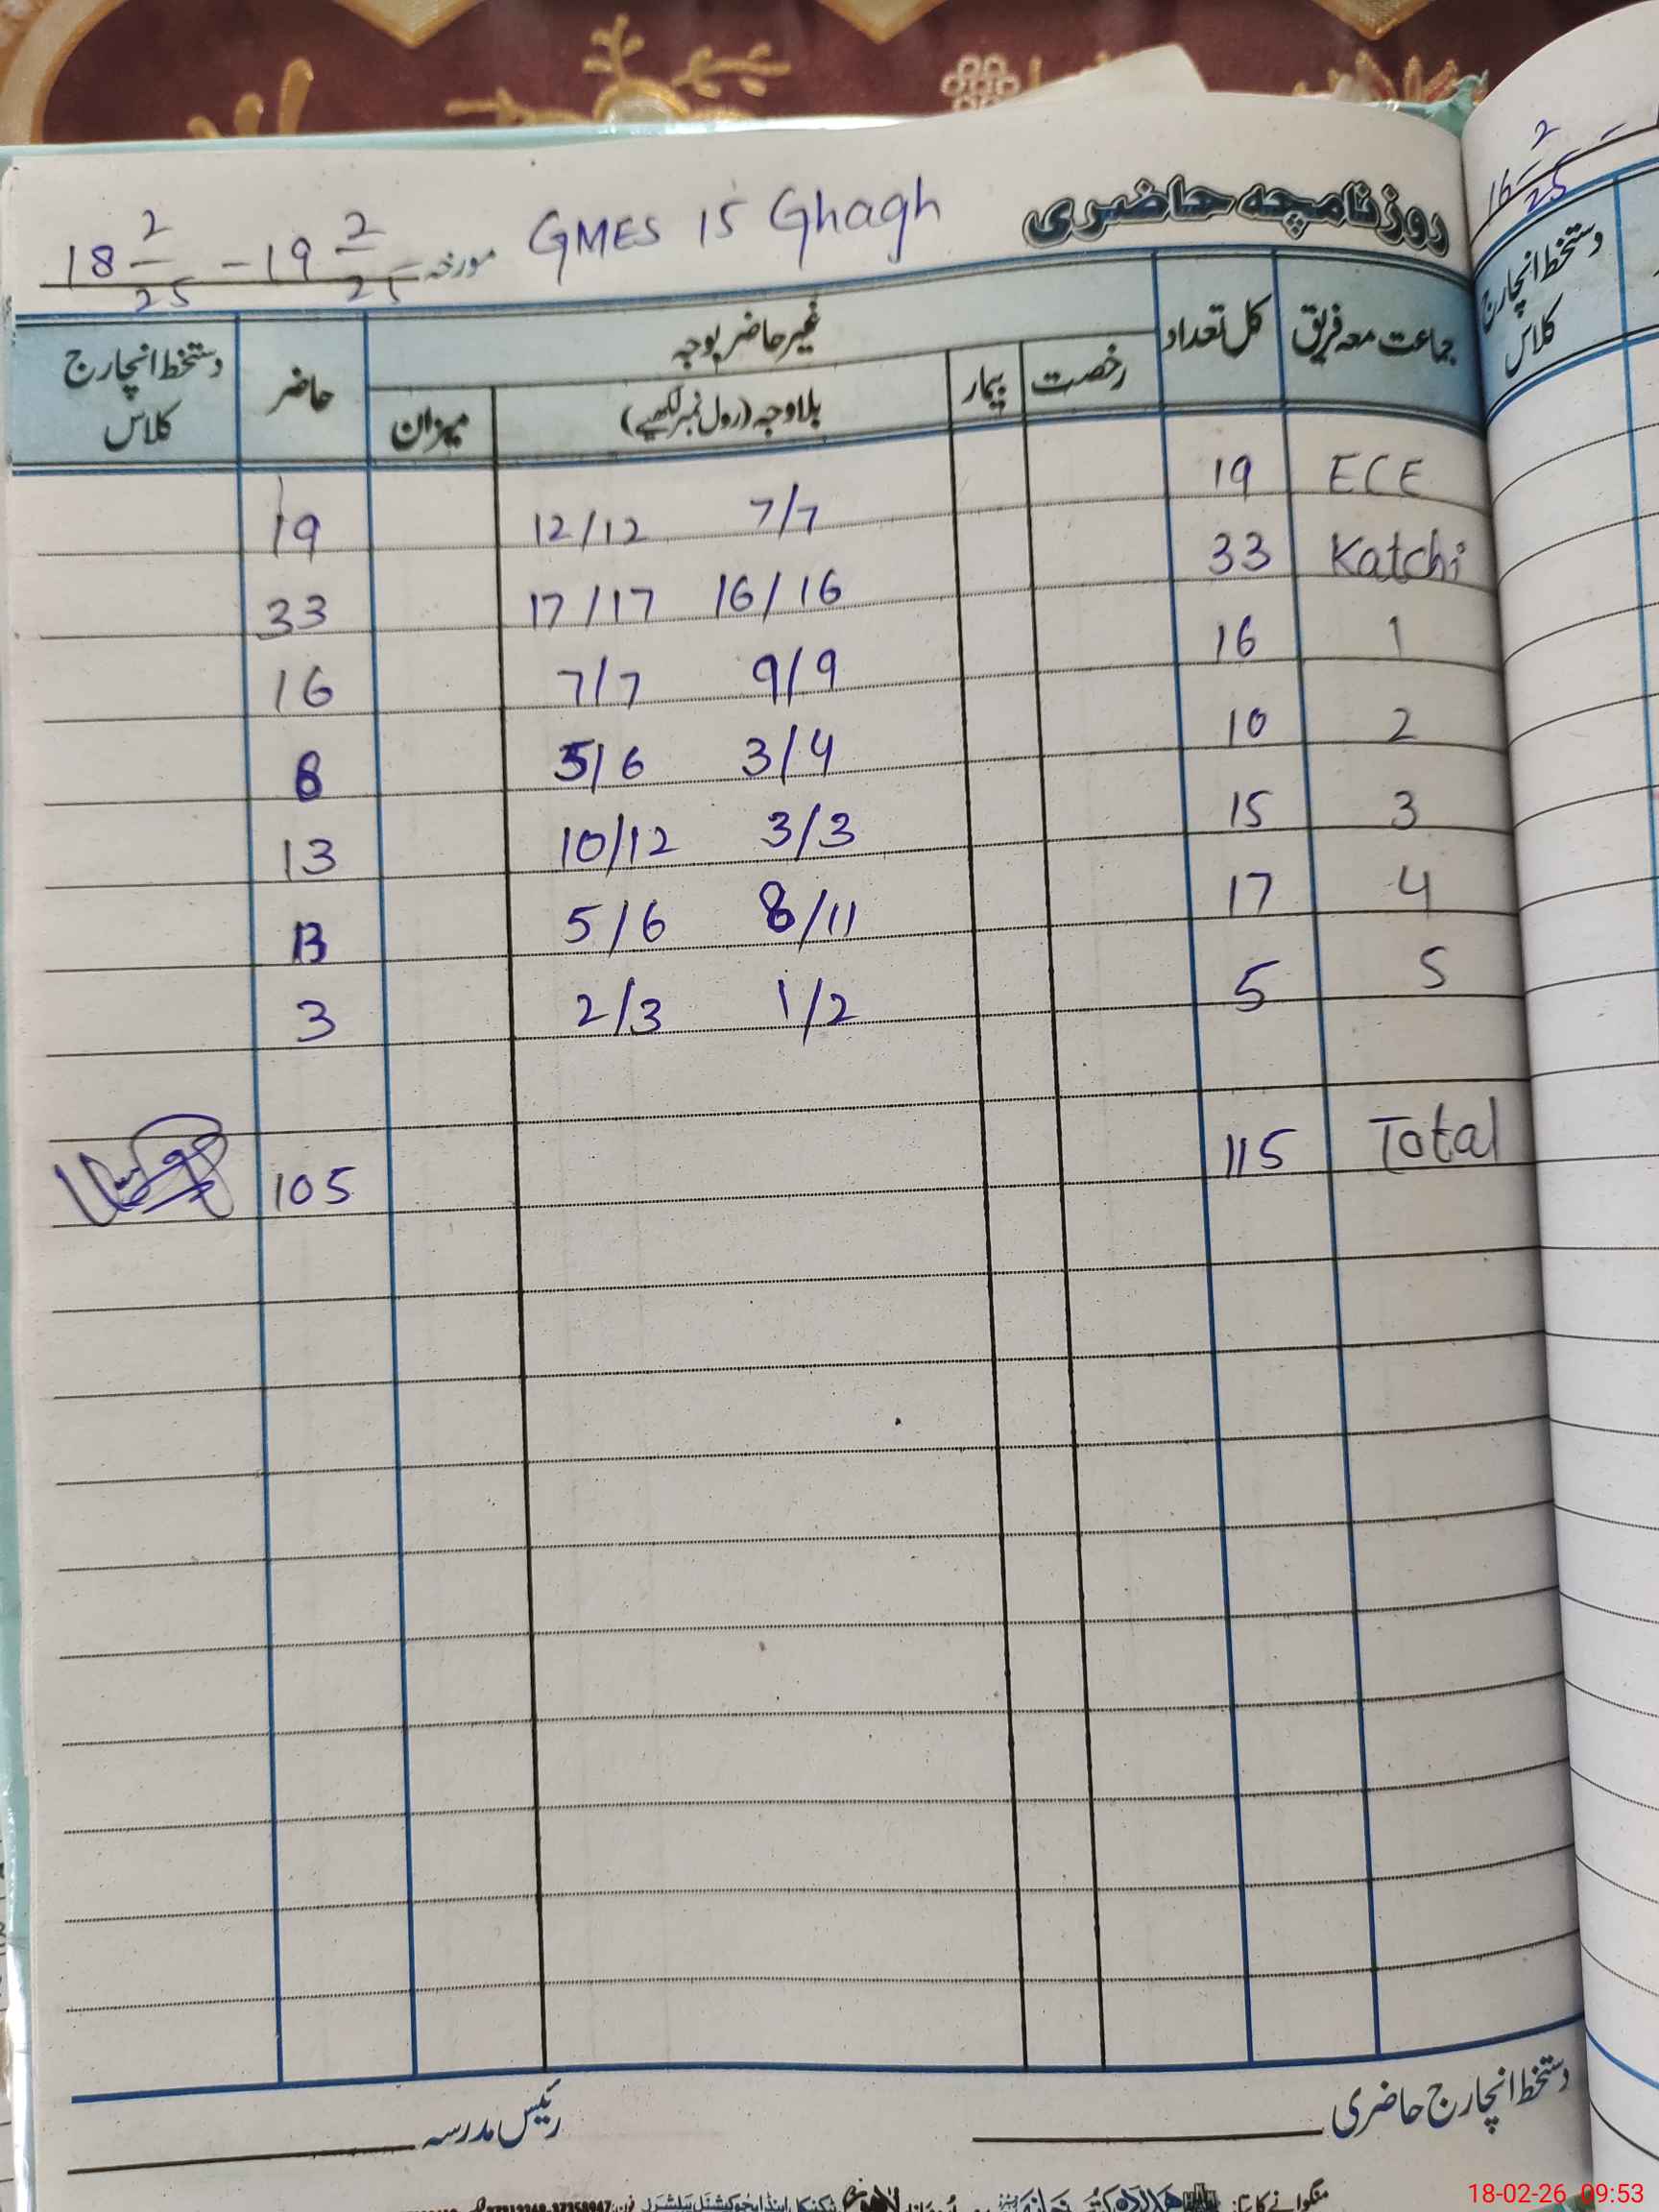 روزنامچہ حاضری GMES 15 Ghagh مورخہ 18 2/25 - 19 2/25
جماعت معہ فریق کل تعداد غیر حاضر بوجہ حاضر دستخط انچارج کلاس
رخصت بیمار بلاوجہ (رول نمبر لکھیے) میزان
ECE 19 7/7 12/12 19
Katchi 33 16/16 17/17 33
1 16 9/9 7/7 16
2 10 3/4 5/6 8
3 15 3/3 10/12 13
4 17 8/11 5/6 13
5 5 1/2 2/3 3
Total 115 105
دستخط انچارج حاضری رئیس مدرسہ
منگوانے کا پتا:
16 2/25 -
دستخط انچارج
کلاس
18-02-26 09:53